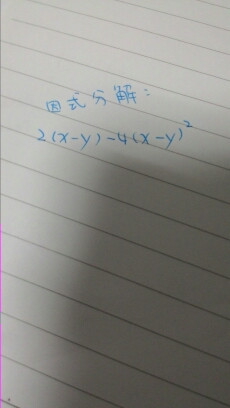 因式分解:
2(x-y)-4(x-y)²